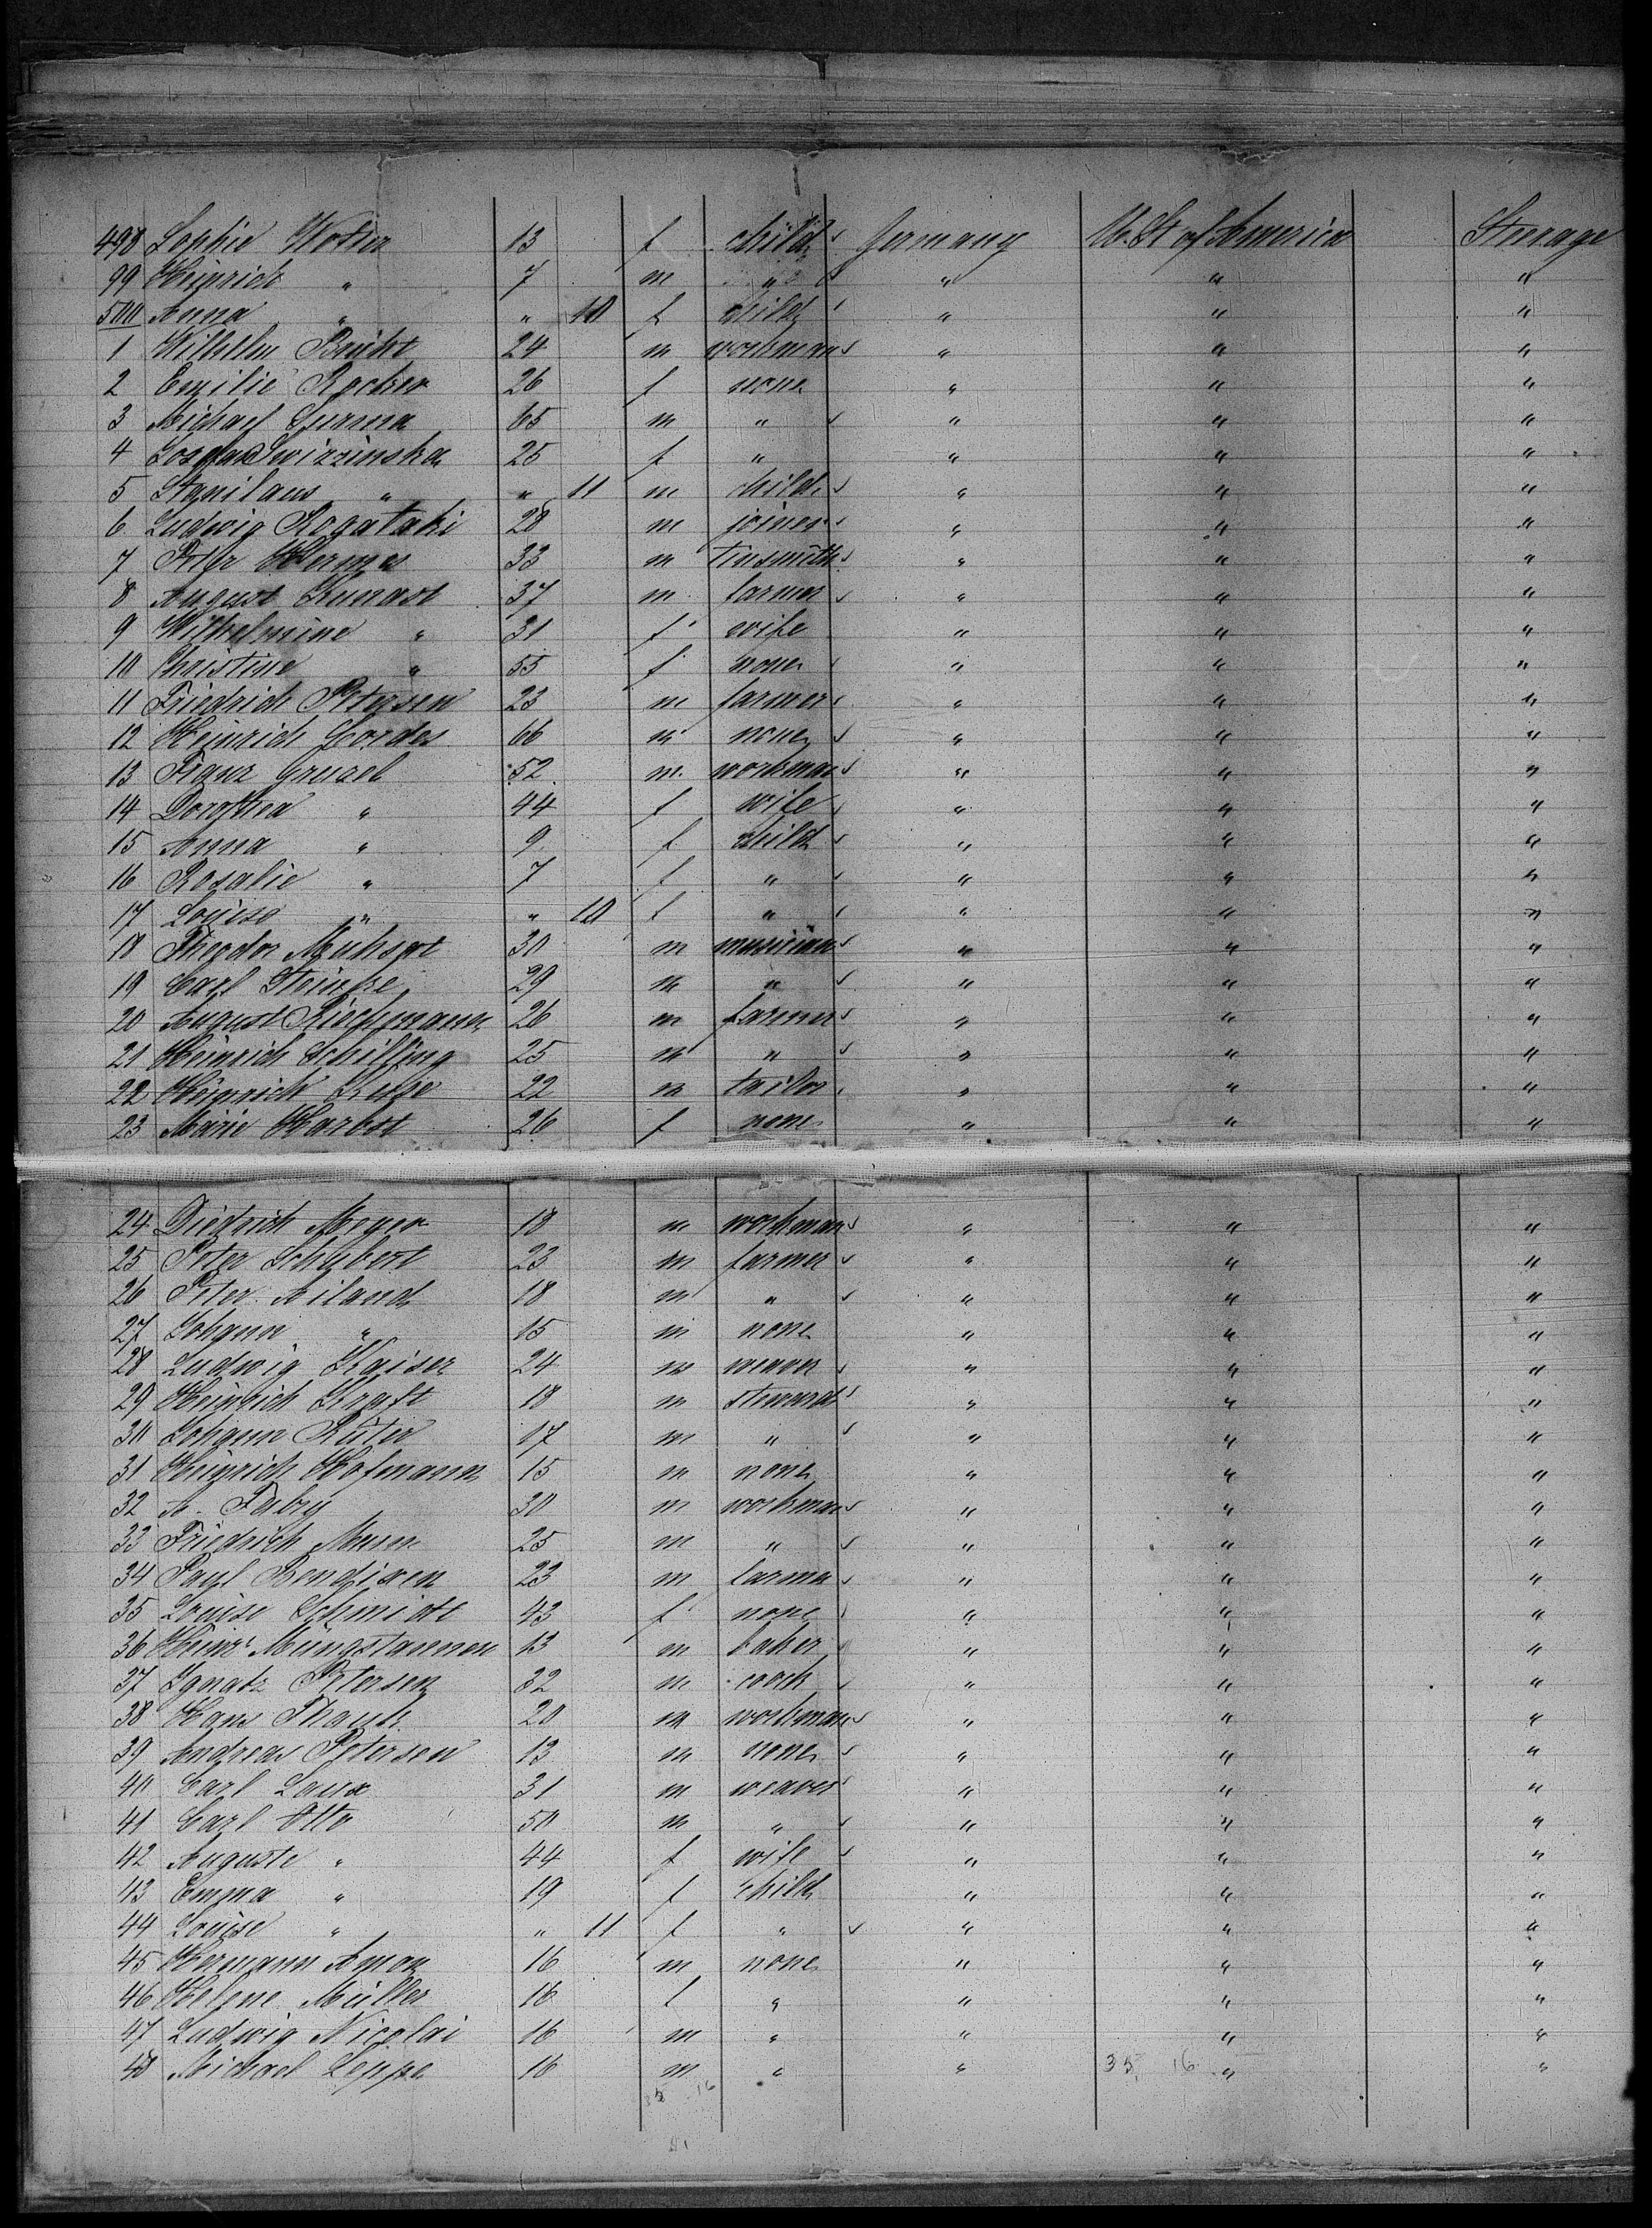 498 Sophie 13 f child Germany U. St of America Steerage
99 Heinrich " 7 m " " " "
500 Anna " " 10 f child " " "
1 Wilhelm 24 m workman " " "
2 Emilie 26 f none " " "
3 Michael 65 m " " " "
4 25 f " " " "
5 Stanilaus " " 11 m child " " "
6 Ludwig Rogataki 28 m joiner " " "
7 Peter Hermes 33 m tinsmith " " "
8 August Kunast 37 m farmer " " "
9 Wilhelmine " 31 f wife " " "
10 Christine " 55 f none " " "
11 Friedrich Petersen 23 m farmer " " "
12 Heinrich Cordes 66 m none " " "
13 Franz Greusel 52 m workman " " "
14 Dorothea " 44 f wife " " "
15 Anna " 9 f child " " "
16 Rosalie " 7 f " " " "
17 Louise " " 10 f " " " "
18 Theodor 30 m musician " " "
19 Carl Steinke 29 m " " " "
20 August Riechmann 26 m farmer " " "
21 Heinrich Schilling 25 m " " " "
22 Heinrich 22 m tailor " " "
23 Marie Harbst 26 f none " " "
24 Diedrich Meyer 18 m workman " " "
25 Peter Schubert 23 m farmer " " "
26 Peter Ailand 18 m " " " "
27 Johann " 15 m none " " "
28 Ludwig Kaiser 24 m weaver " " "
29 Heinrich Kraft 18 m steward " " "
30 Johann Rüter 17 m " " " "
31 Heinrich Hofmann 15 m none " " "
32 A. Fabry 30 m workman " " "
33 Friedrich 25 m " " " "
34 Paul Bendixen 23 m farmer " " "
35 Louise Schmidt 43 f none " " "
36 Heinr. Müngstannen 13 m baker " " "
37 Ignatz Petersen 32 m coock " " "
38 Hans 20 m workman " " "
39 Andreas Petersen 13 m none " " "
40 Carl Laux 31 m weaver " " "
41 Carl Otto 50 m " " " "
42 Auguste " 44 f wife " " "
43 Emma " 19 f child " " "
44 Louise " " 11 f " " " "
45 Hermann Amon 16 m none " " "
46 Helene Müller 16 f " " " "
47 Ludwig Nicolai 16 m " " " "
48 Michael Leppe 16 m " " 35 16 " "
35 16